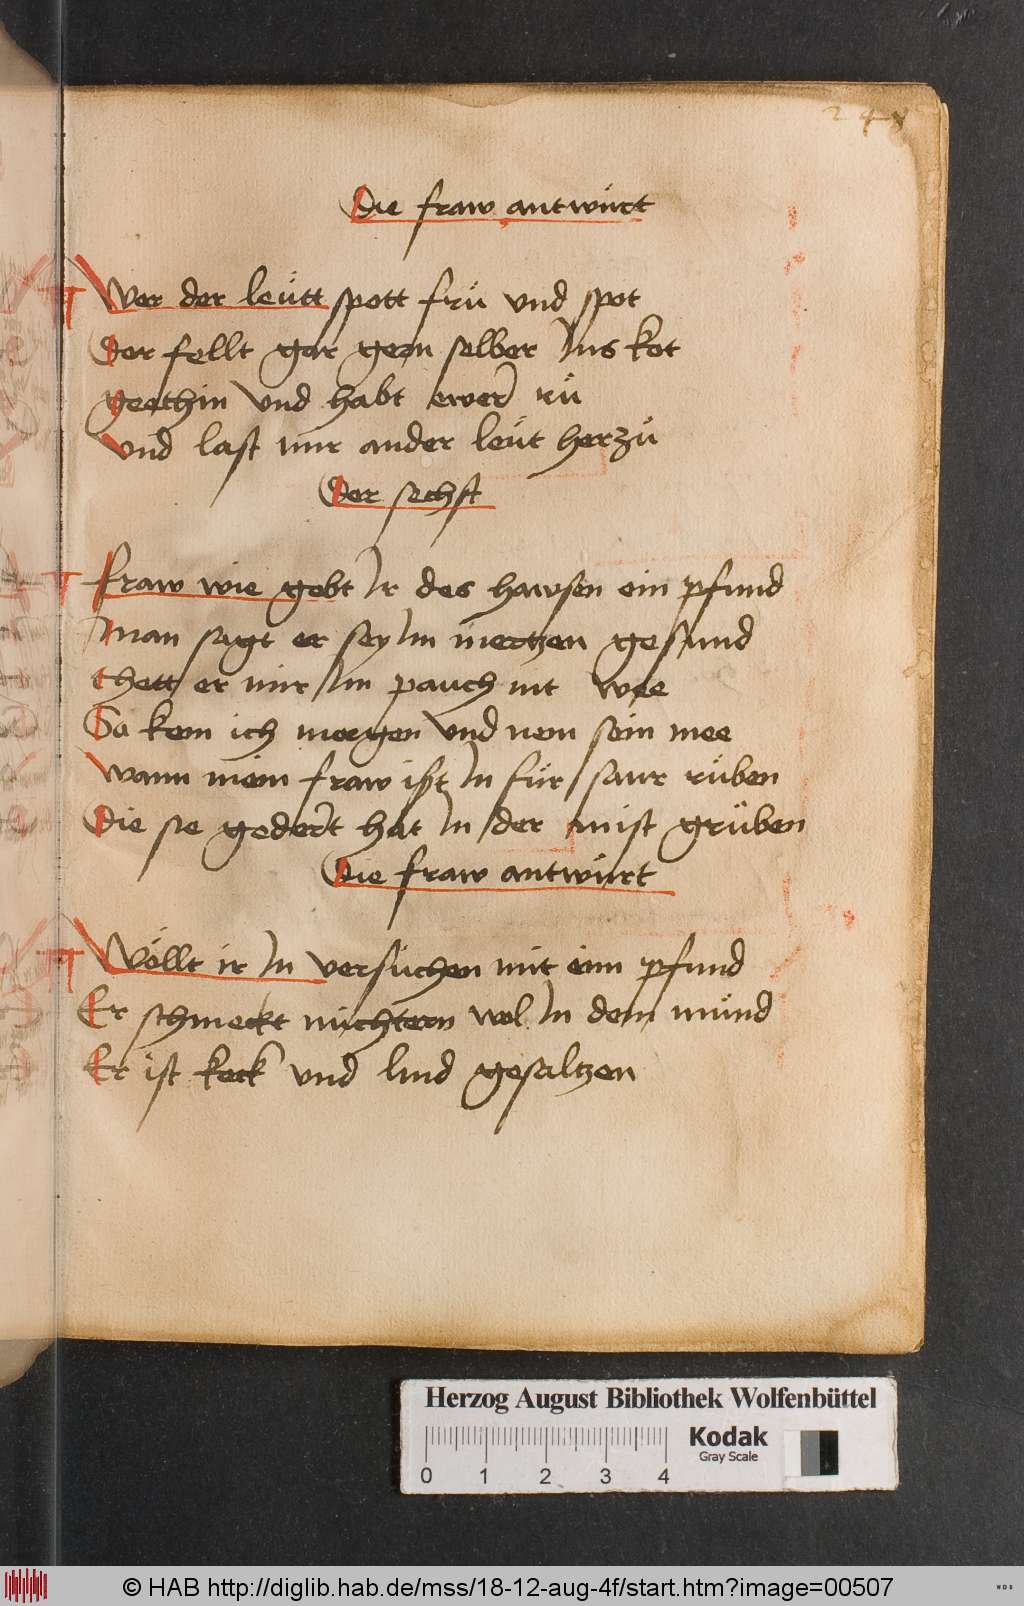 24
Die fraw antwürt
Wer der leütt spott frü vnd spot
Der fellt gar gern selber Ins kot
geethin vnd habt ewer rü
vnd last mir ander leüt herzü
Der sechst
Fraw wie gebt Ir des hawsen ein pfund
Man sagt er sey Im mertzen gesund
thett er mir Im pauch nit wee
So kem ich morgen vnd nem sein mee
wann mein fraw ißt In für saur rüben
Die sie gederrt hat In der mist grüben
Die fraw antwürt
Wöllt ir In versüchen mit eim pfund
Er schmeckt nüchtern wol In dem mund
Er ist keck vnd lind gesaltzen
Herzog August Bibliothek Wolfenbüttel
Kodak
Gray Scale
0 1 2 3 4
© HAB http://diglib.hab.de/mss/18-12-aug-4f/start.htm?image=00507